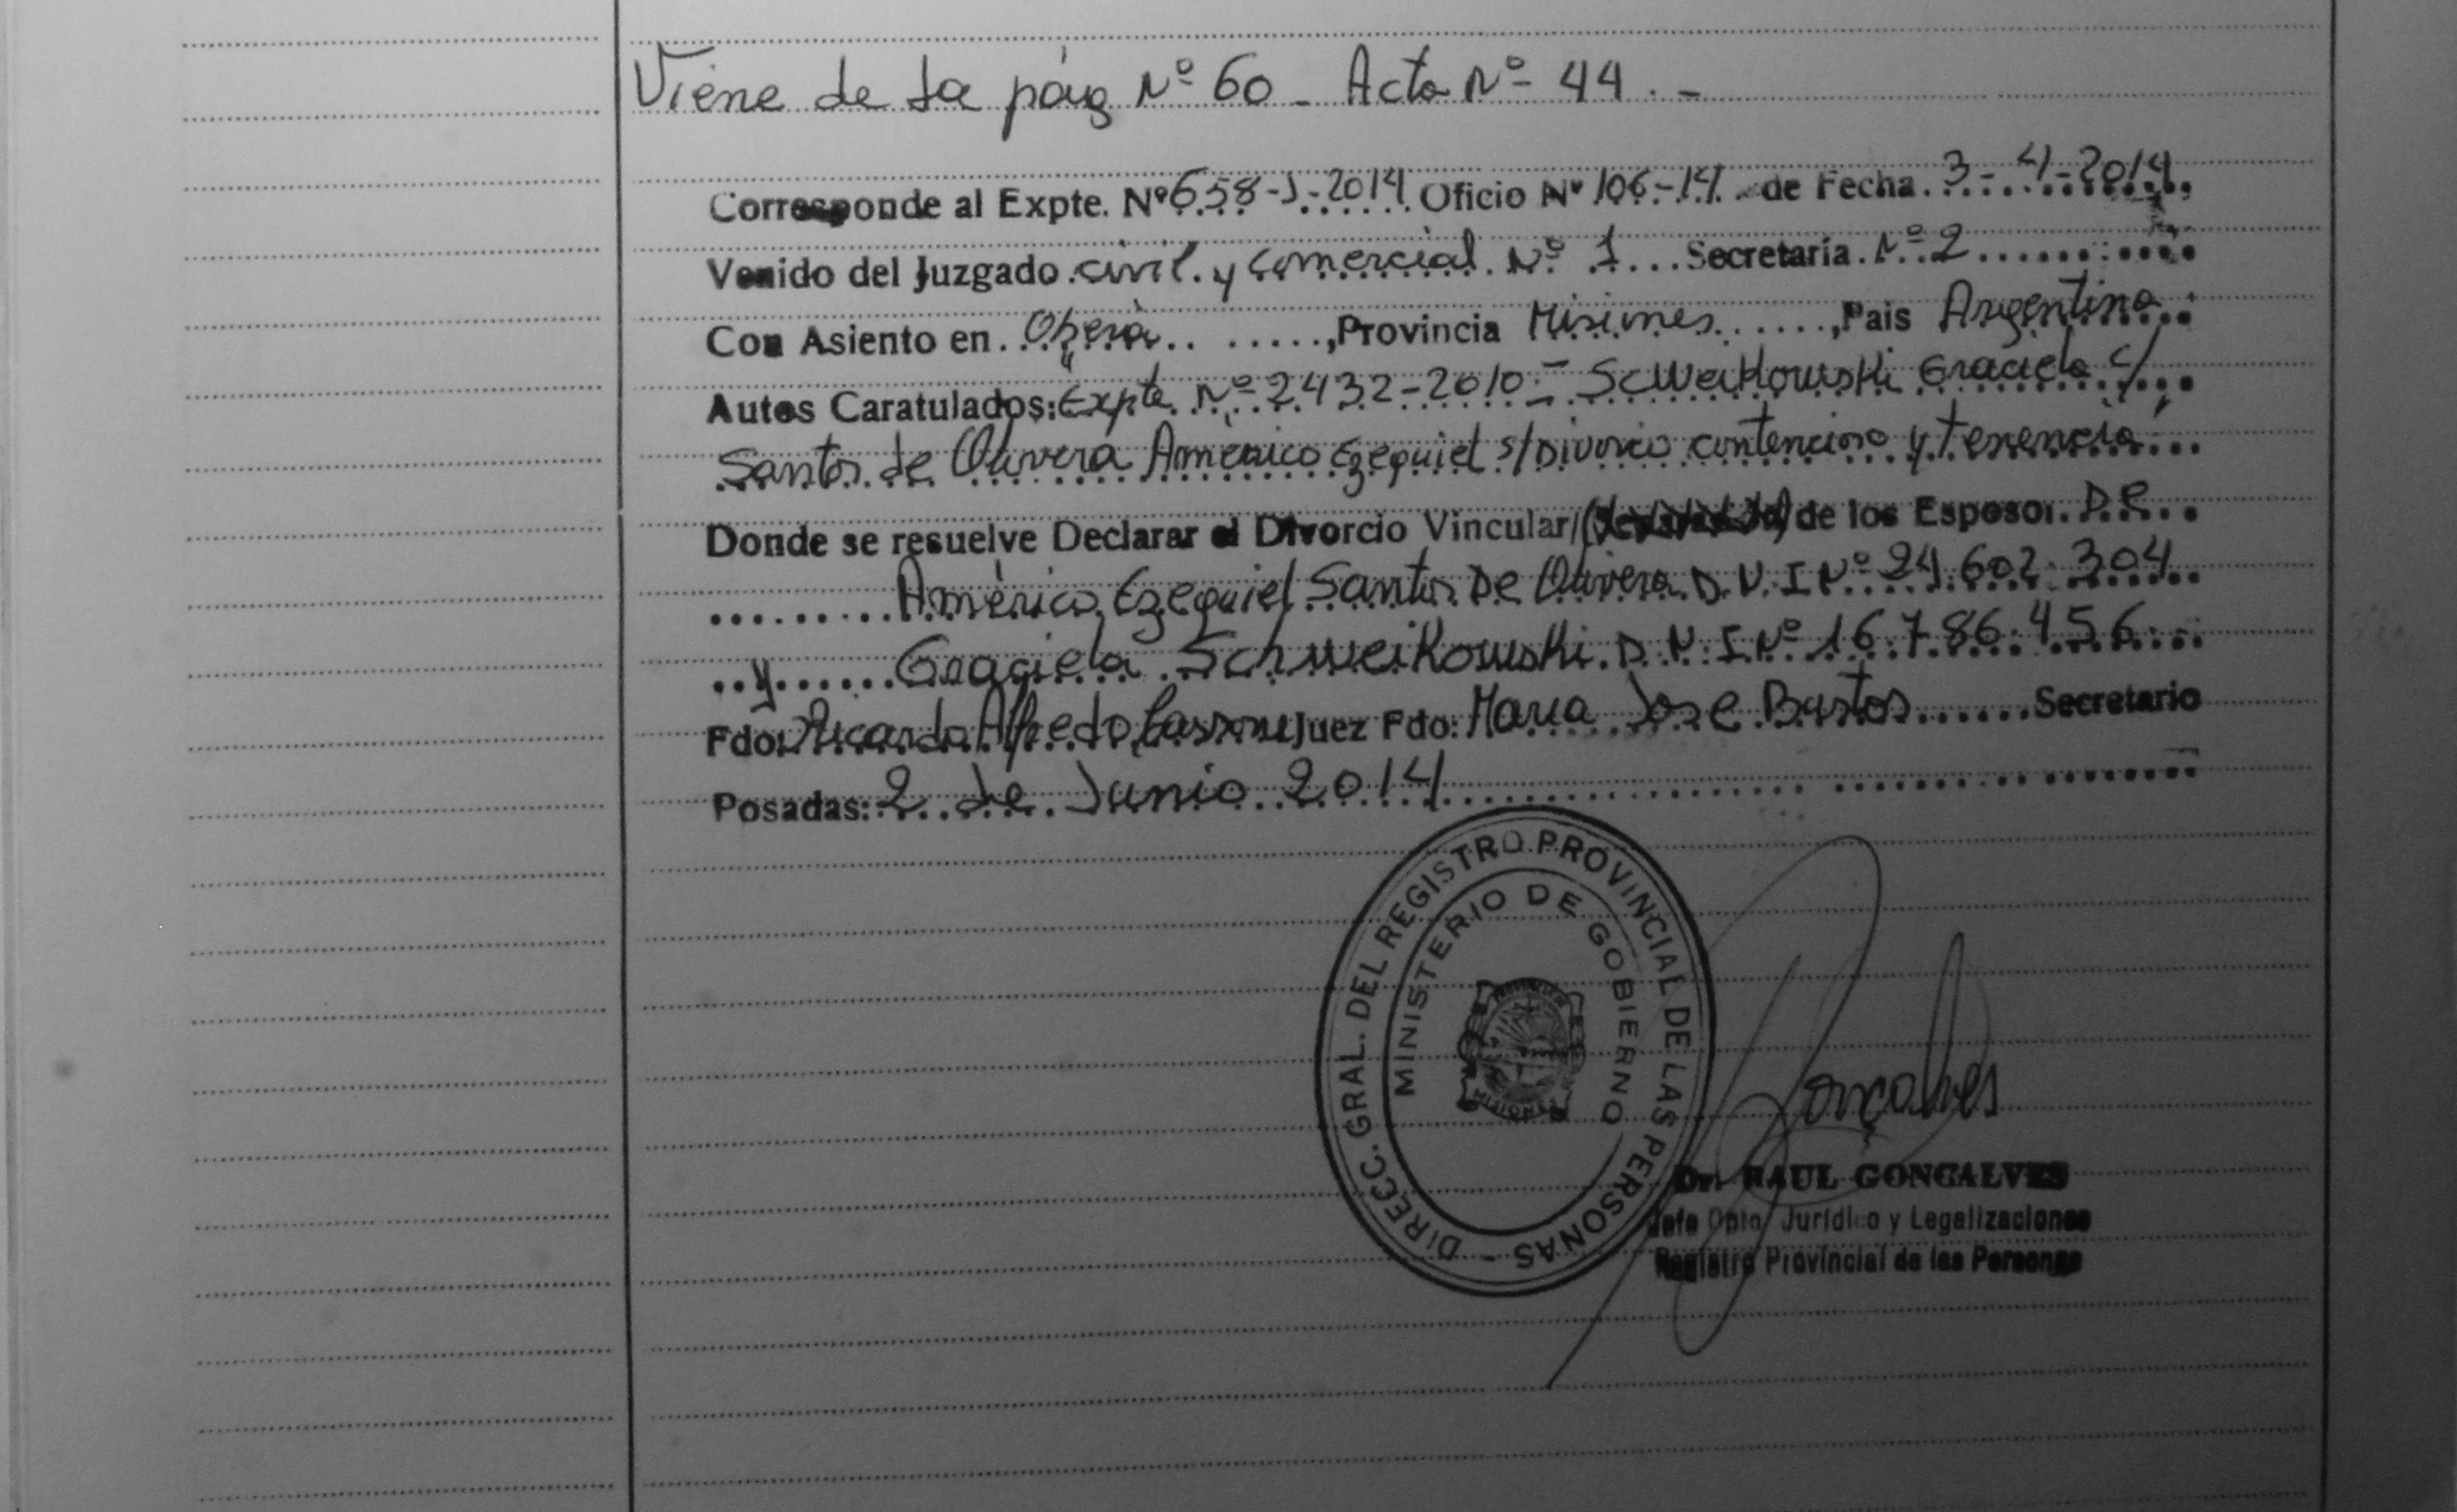 Viene de la pág Nº 60 - Acta Nº 44 . -
Corresponde al Expte. Nº 658-J-2014 Oficio Nº 106-14 de Fecha 3-4-2014
Venido del Juzgado civil y comercial Nº 1 Secretaría Nº 2
Con Asiento en Oberá, Provincia Misiones, Pais Argentina
Autos Caratulados: Expte Nº 2432-2010 - Scweikowski Graciela c/
Santos de Olivera Américo Ezequiel s/ Divorcio contencioso y tenencia
Donde se resuelve Declarar el Divorcio Vincular/ de los Esposos. De
Américo Ezequiel Santos De Olivera D.N.I Nº 24.602.304
y Graciela Schweikowski D.N.I Nº 16.786.456
Fdo: Ricardo Alfredo Juez Fdo: Maria Jose Bustos Secretario
Posadas: 2 de Junio 2014
DIRECC. GRAL. DEL REGISTRO PROVINCIAL DE LAS PERSONAS -
MINISTERIO DE GOBIERNO
MISIONES
Gonçalves
Dr. RAUL GONCALVES
Jefe Dpto. Jurídico y Legalizaciones
Registro Provincial de las Personas